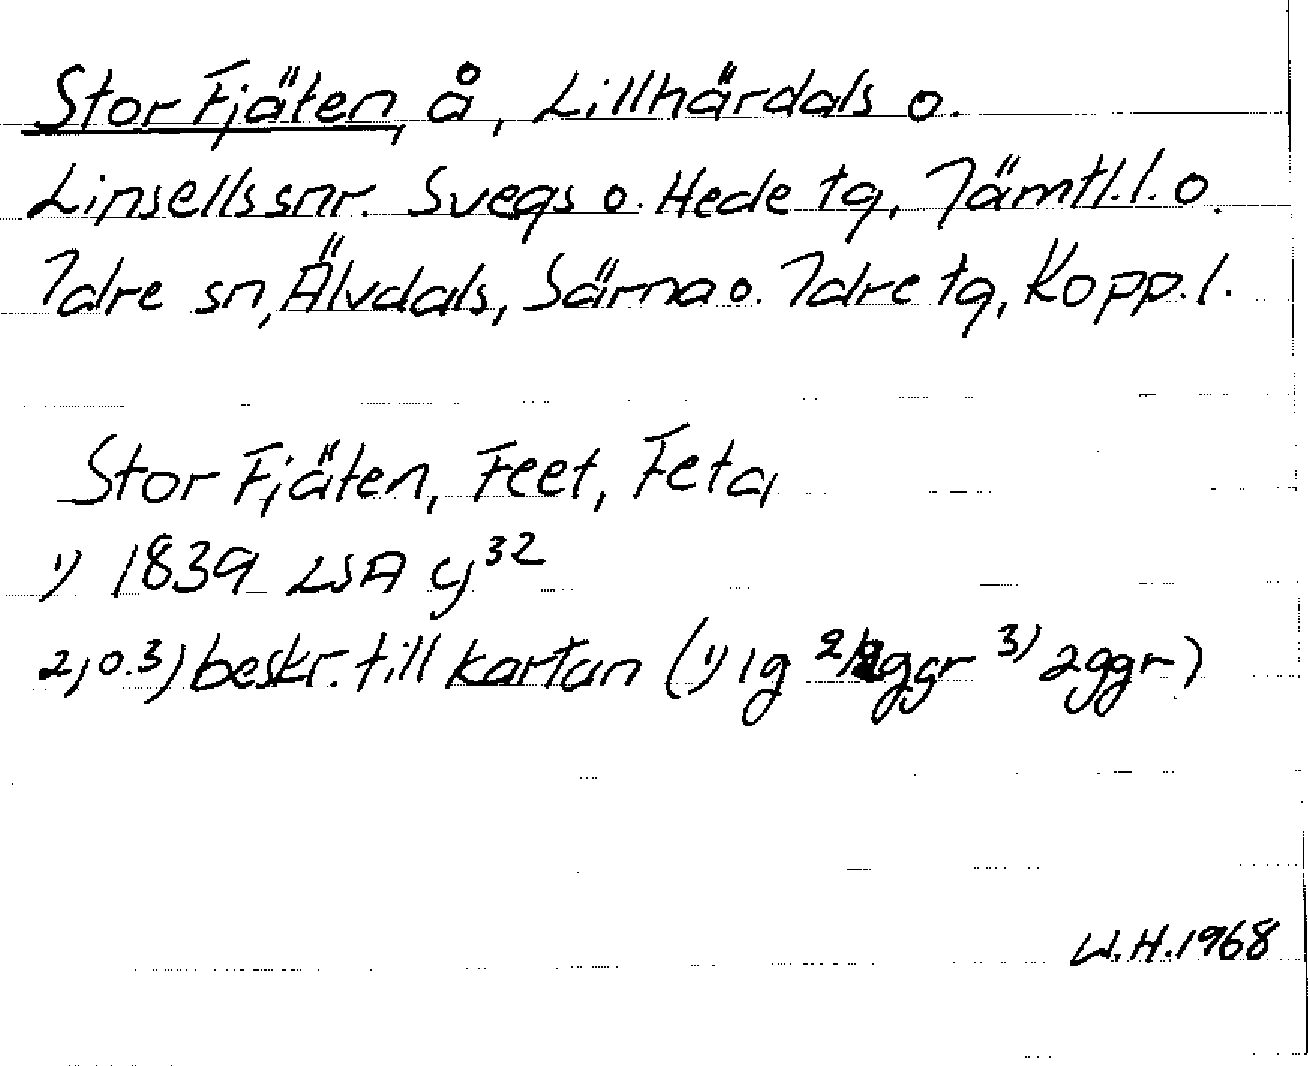 Stor Fjäten, å, Lillhärdals o.
Linsells snr. Svegs o. Hede tg, Jämtl.l. o.
Idre sn, Älvdals, Särna o. Idre tg, Kopp. l.
Stor Fjäten, Feet, Feta,
1) 1839 LSA y³²
2) o. 3) beskr. till kartan (1) 1g 2) ggr 3) 2ggr)
W.H. 1968